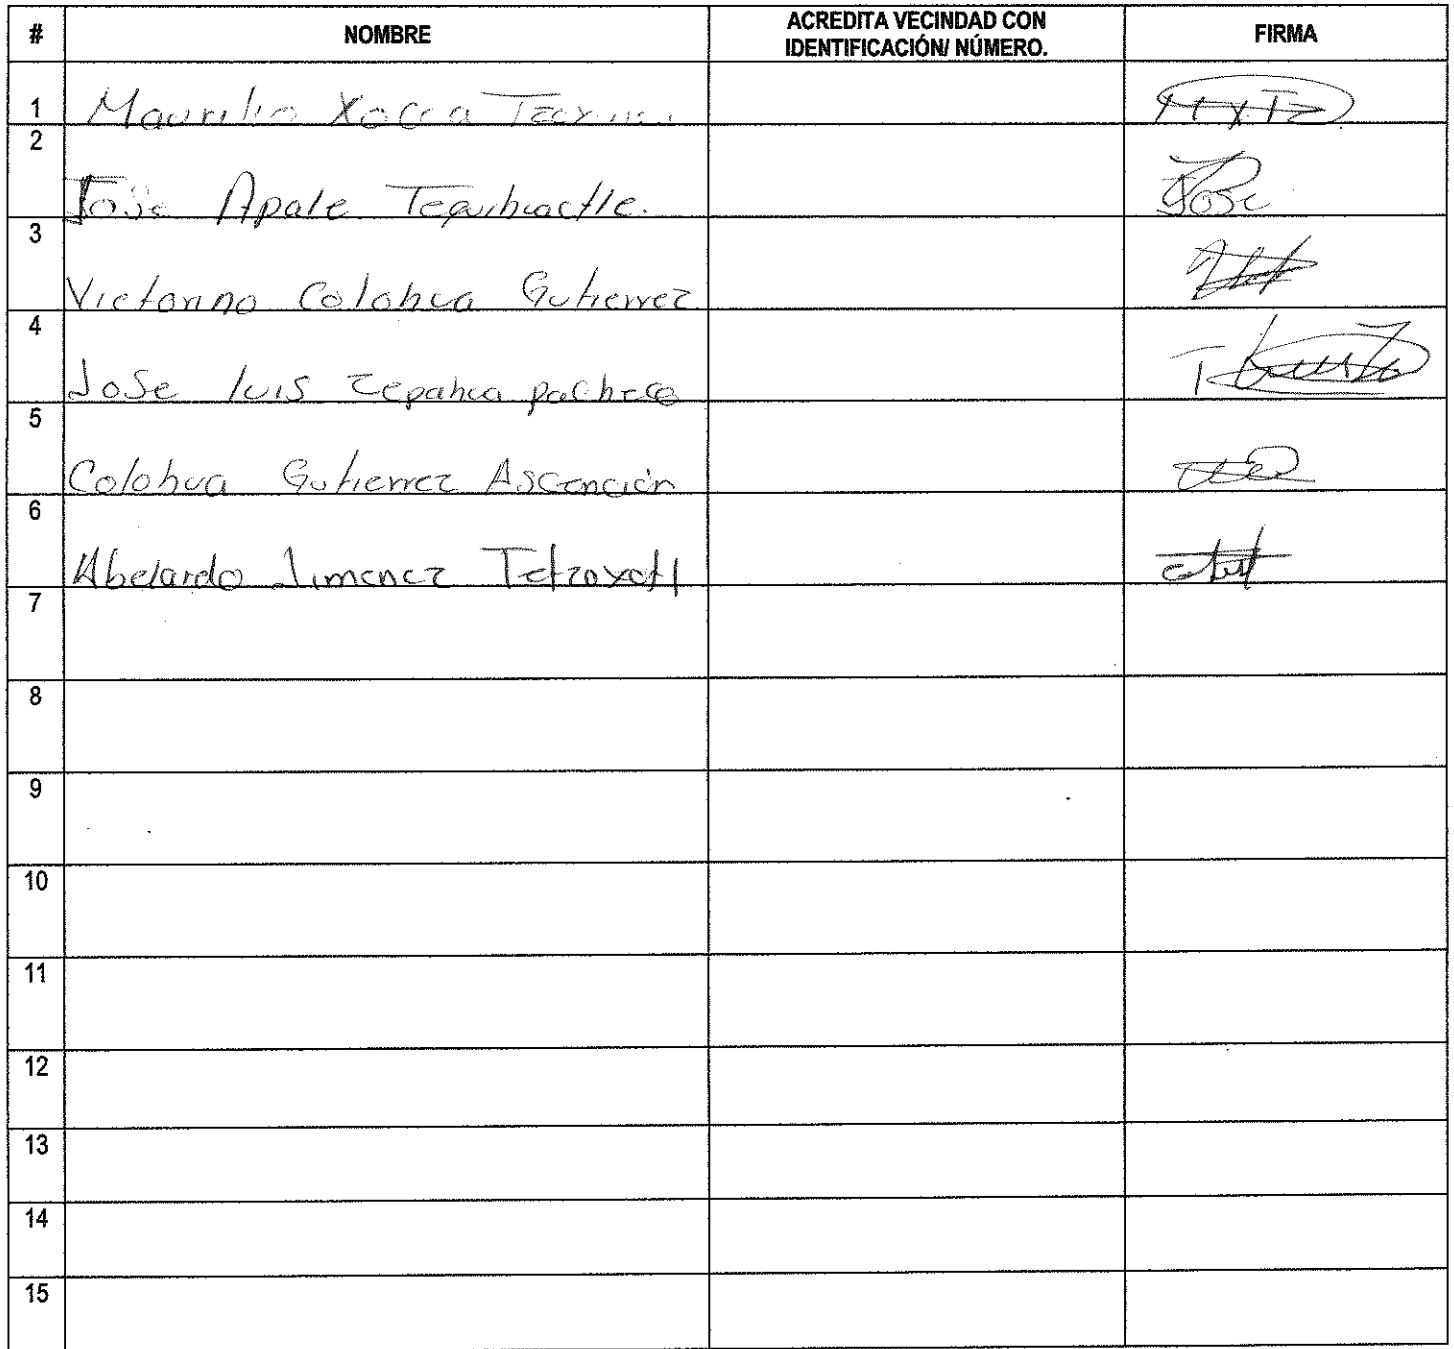 # NOMBRE ACREDITA VECINDAD CON IDENTIFICACIÓN/ NÚMERO. FIRMA
1 Maurilio Xocca MXTz
2
Jose Apale Tequihuactle. Jose
3
Victorino Colohua Gutierrez
4
Jose luis Tepahua pacheco
5
Colohua Gutierrez Ascención
6
Abelardo Jimenez Tetzoyotl
7
8
9
10
11
12
13
14
15